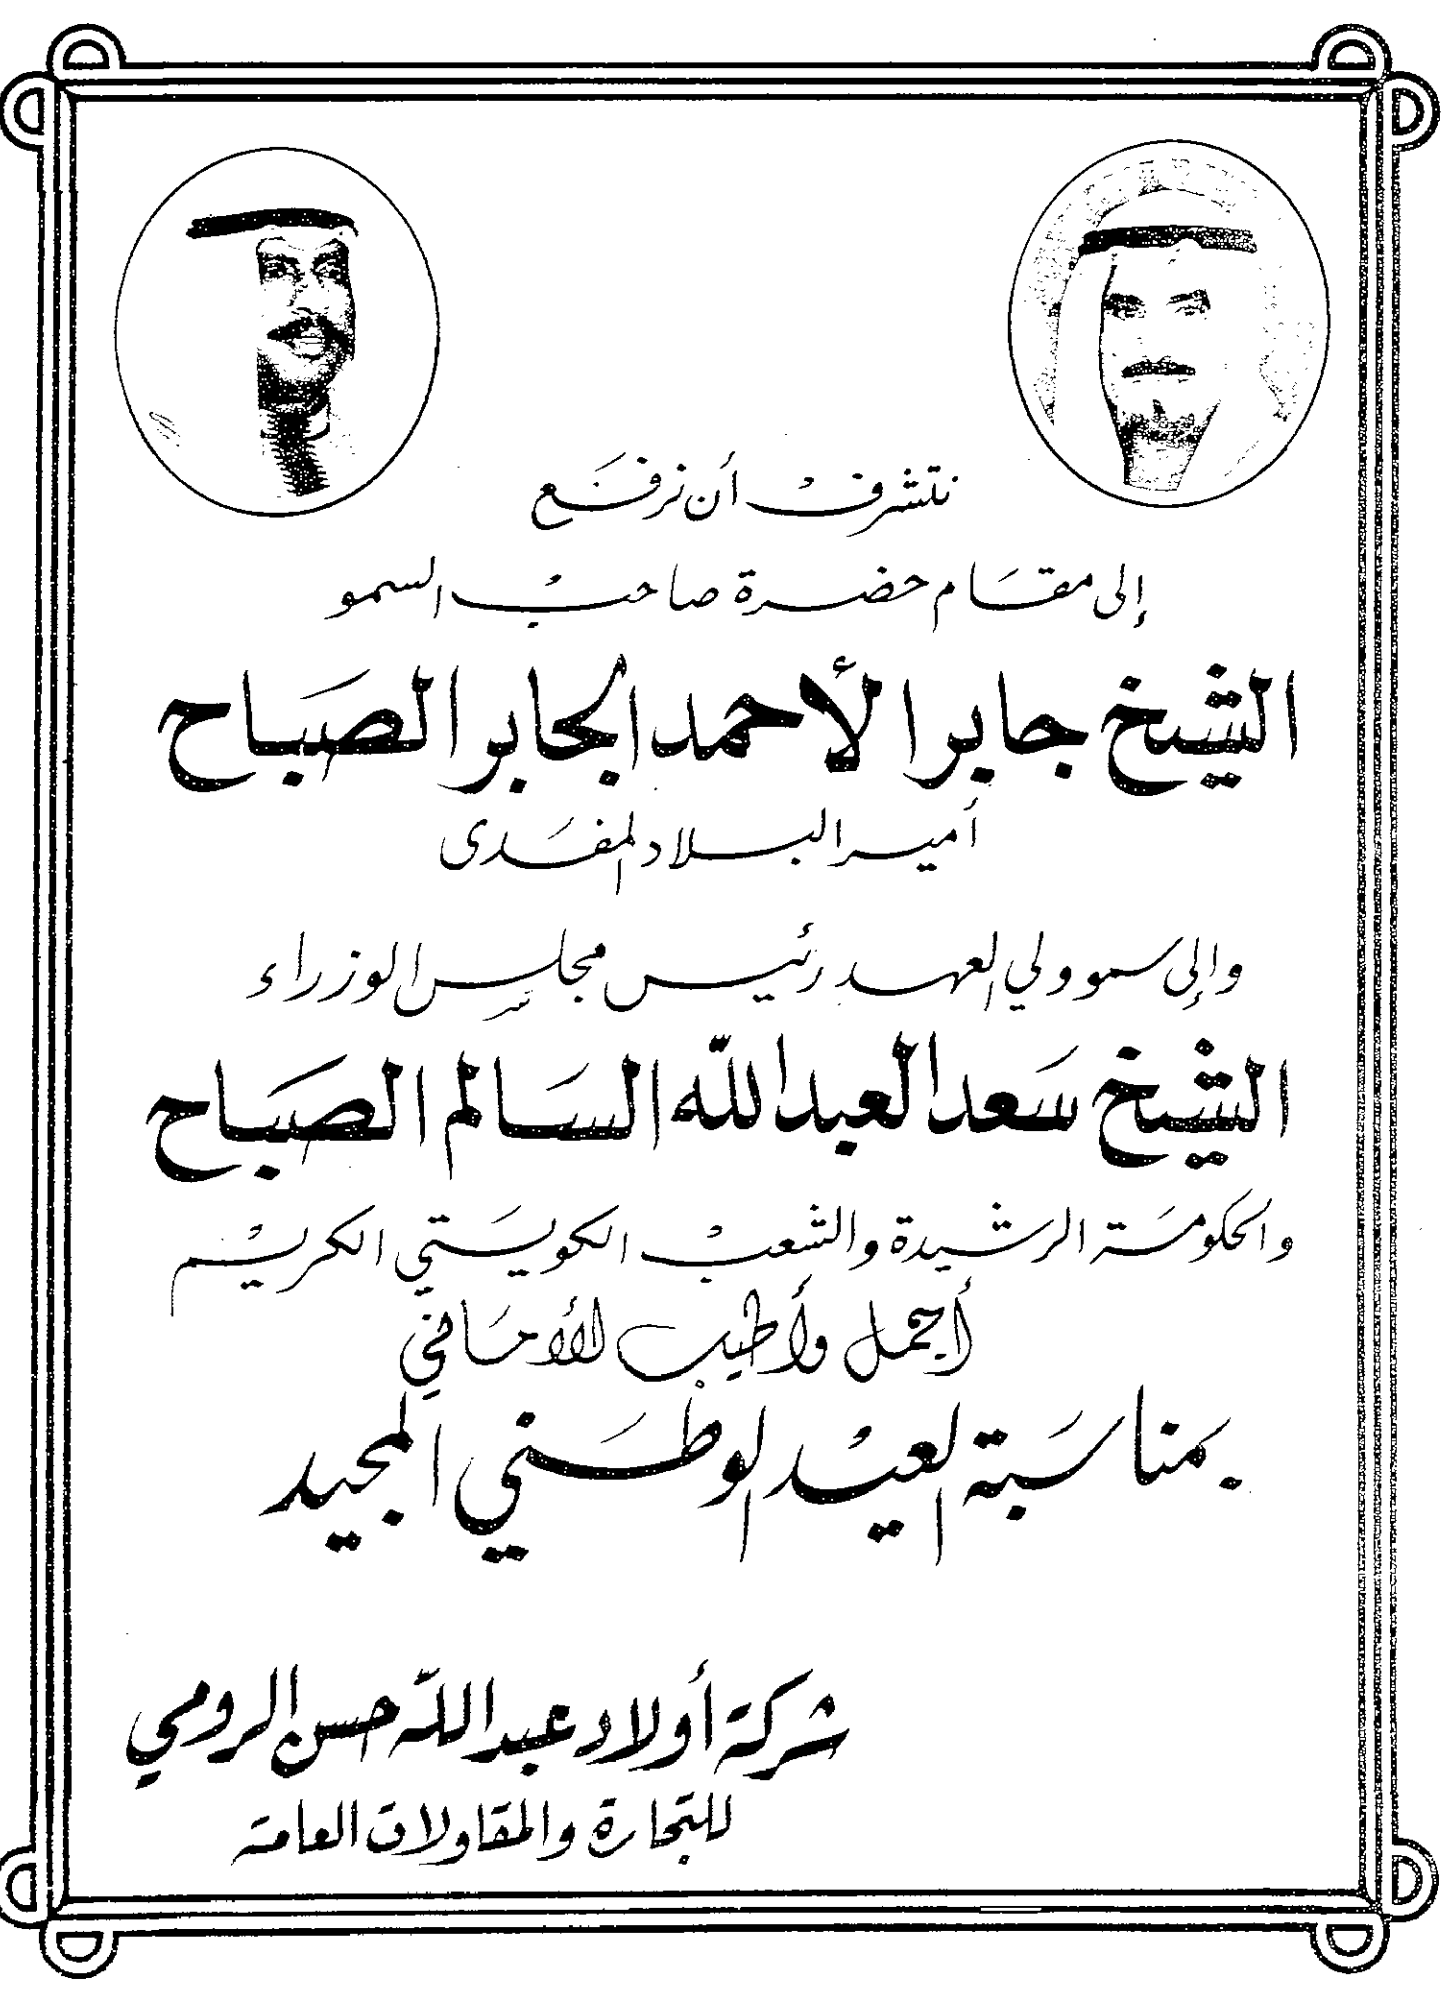 نتشرف أن نرفع
إلى مقام حضرة صاحب السمو
الشيخ جابر الأحمد الجابر الصباح
أمير البلاد المفدى
وإلى سمو ولي العهد رئيس مجلس الوزراء
الشيخ سعد العبدالله السالم الصباح
والحكومة الرشيدة والشعب الكويتي الكريم
أجمل وأطيب الأماني
بمناسبة العيد الوطني المجيد
شركة أولاد عبدالله حسن الرومي
للتجارة والمقاولات العامة